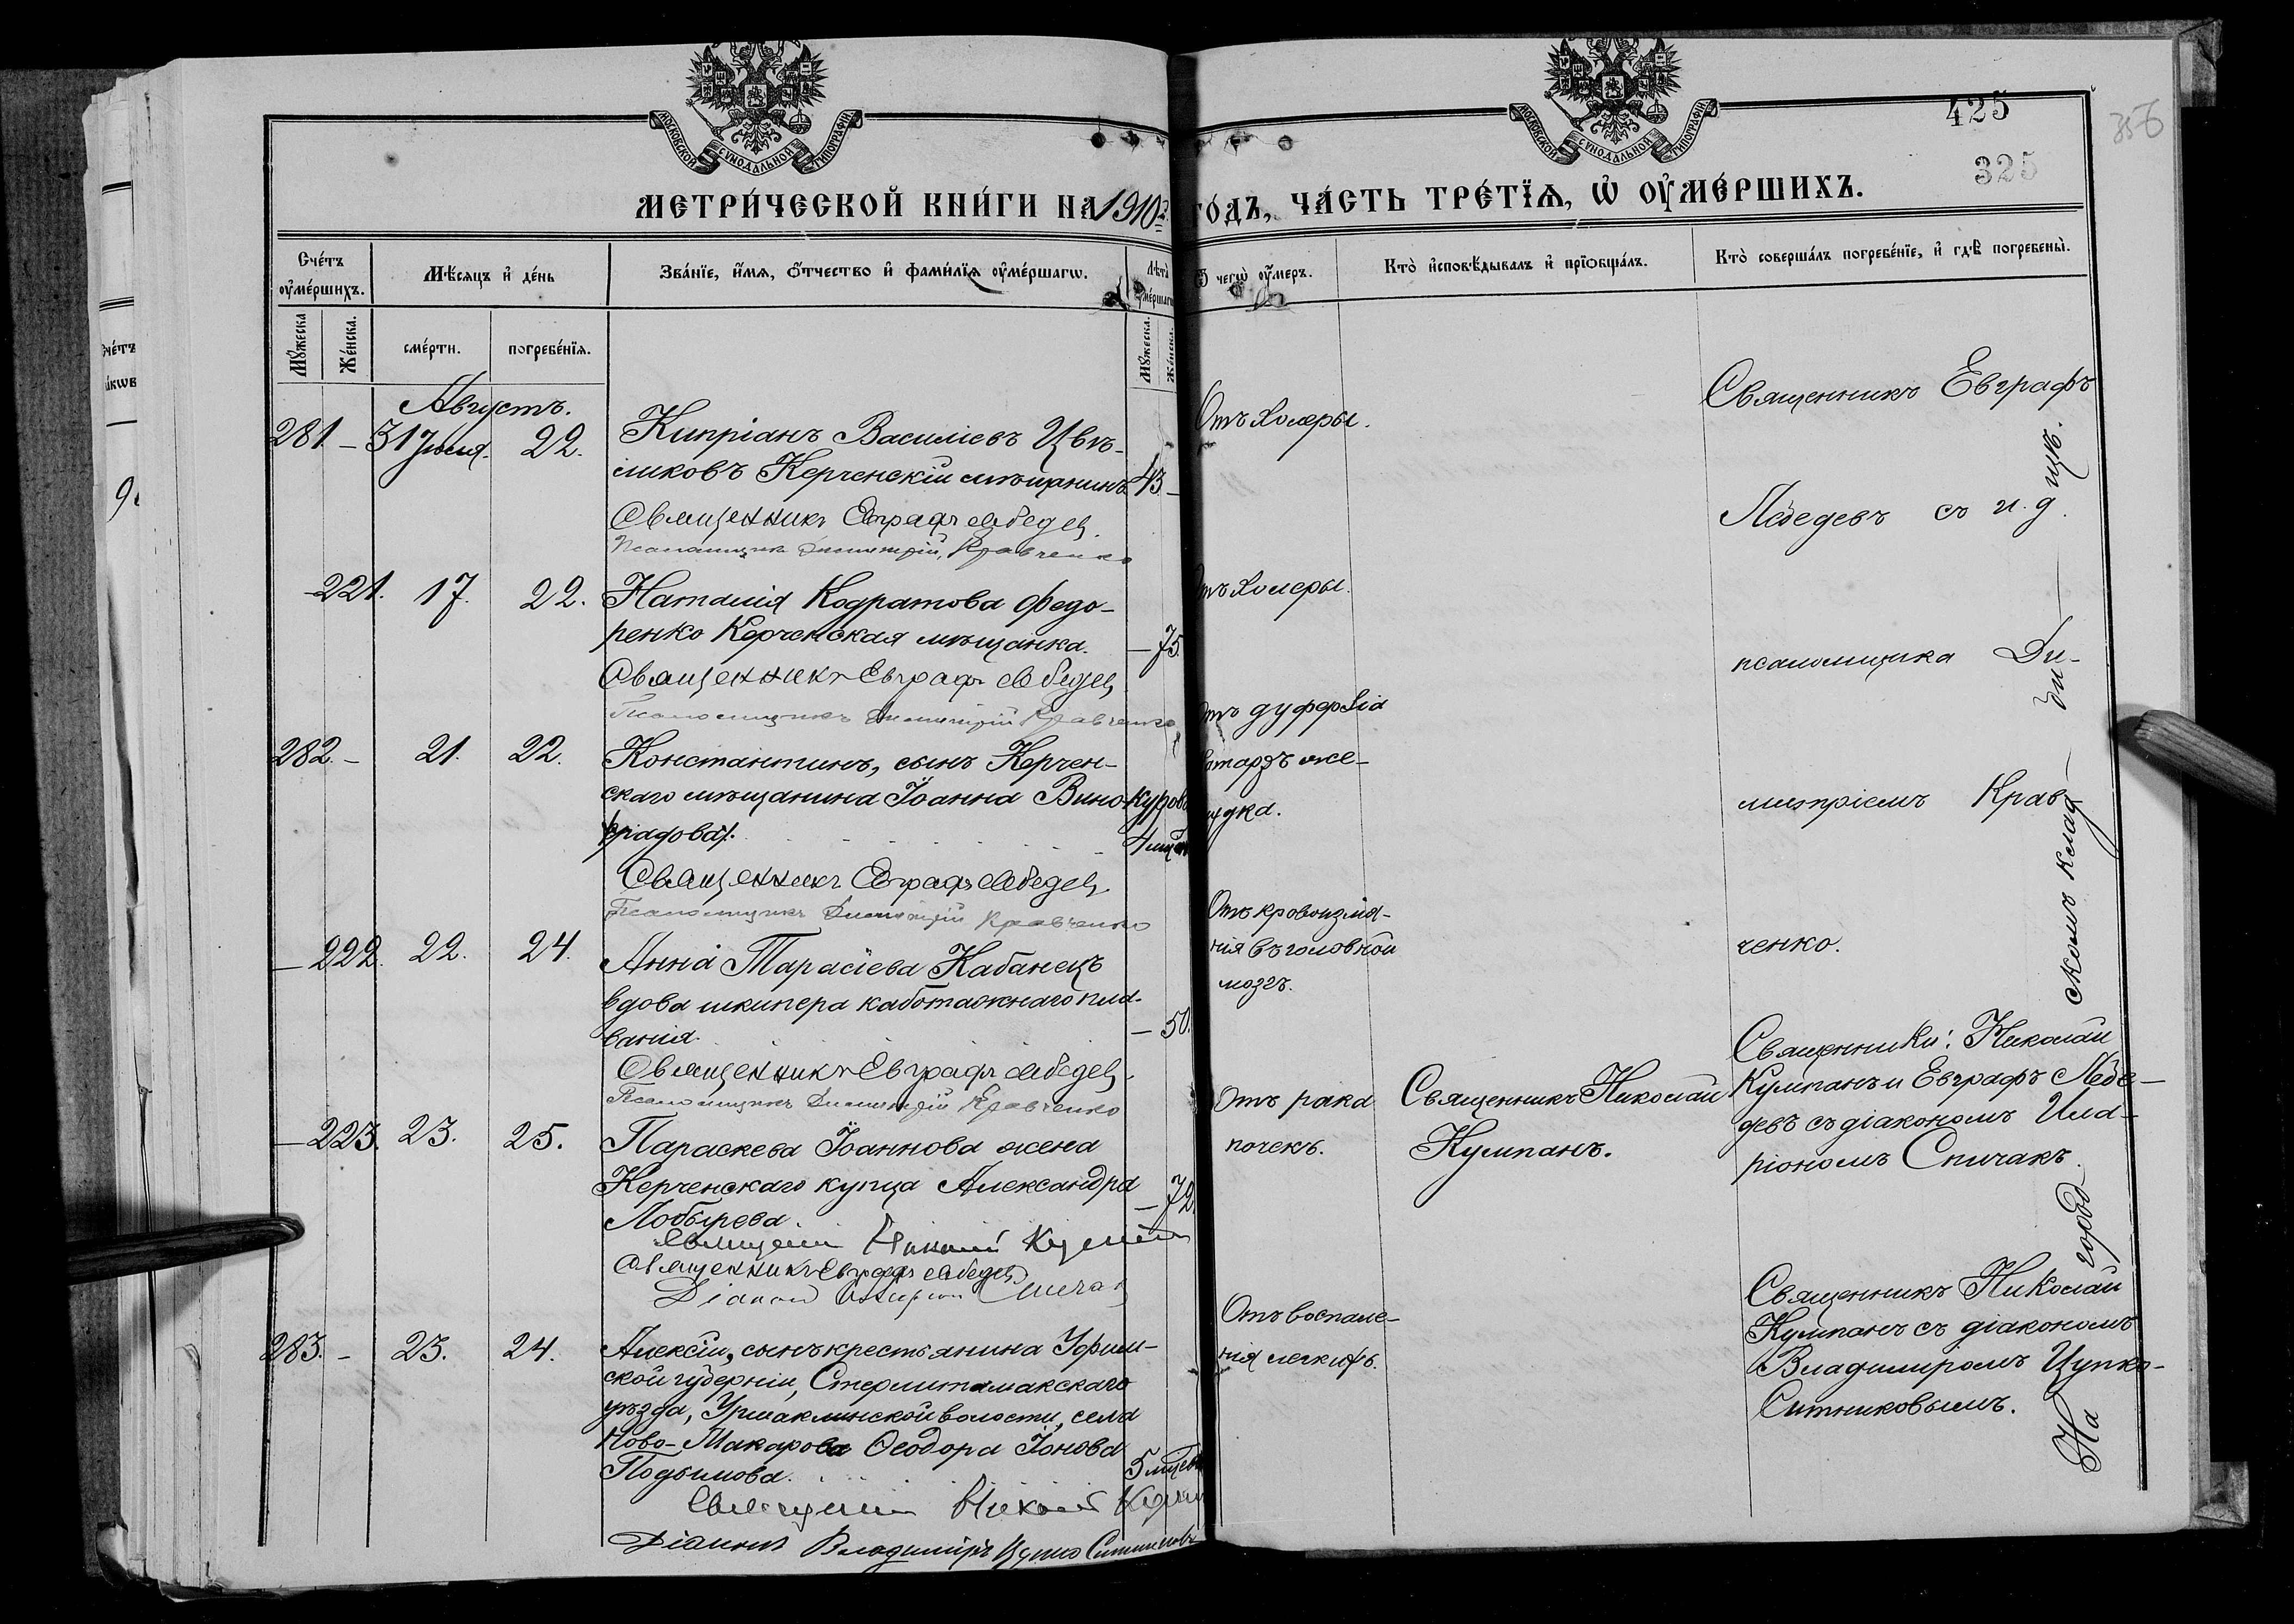 МОСКОВСКОЙ СѴНОДАЛЬНОЙ ТИПОГРАФІИ
МОСКОВСКОЙ СѴНОДАЛЬНОЙ ТИПОГРАФІИ
425
356
325
МЕТРИ́ЧЕСКОЙ КНИ́ГИ НА 1910 г. ГО́ДЪ, ЧА́СТЬ ТРЕ́ТЇѦ, Ѡ҆ ОУ҆МЕ́РШИХЪ.
Сче́тъ оу҆ме́ршихъ.
Мѣ́сяцъ и҆ де́нь
Зва́нїе, и҆́мѧ, ѻ҆́тчество и҆ фами́лїѧ оу҆ме́ршагѡ.
Лѣ́та оу҆ме́ршагѡ
Ѿ чегѡ̀ оу҆́меръ.
Кто̀ и҆сповѣ́дывалъ и҆ прїѡбща́лъ.
Кто̀ соверша́лъ погребе́нїе, и҆ гдѣ̀ погребены̀.
Мꙋ́жеска
Же́нска.
сме́рти.
погребе́нїѧ.
Мꙋ́жеска.
Же́нска.
Августъ.
281 – 31 Іюля. 22.
Кипріанъ Василіевъ Цвѣ-
ликовъ Керченскій мѣщанинъ 43 –
Священникъ Евграфъ Лебедев
Псаломщикъ Димитрій Кравченко
Отъ холеры.
Священникъ Евграфъ
Лебедевъ съ и. д.
– 221. 17. 22.
Наталія Кодратова Федо-
ренко Керченская мѣщанка. – 75.
Священникъ Евграфъ Лебедев
Псаломщикъ Димитрій Кравченко
Отъ холеры.
псаломщика Ди-
282. – 21. 22.
Константинъ, сынъ Керчен-
скаго мѣщанина Іоанна Вино-куров
/градова/. 4 мѣс
Священникъ Евграфъ Лебедев
Псаломщикъ Димитрій Кравченко
катаръ же-
лудка.
митріемъ Крав-
– 222. 22. 24.
Анна Тарасіева Кабанецъ
вдова шкипера каботажнаго пла-
ванія. – 50.
Священникъ Евграфъ Лебедев
Псаломщикъ Димитрій Кравченко
Отъ кровоизлія-
нія въ головной
мозгъ.
ченко.
– 223. 23. 25.
Параскева Іоаннова жена
Керченскаго купца Александра – 72.
Лобырева.
Священник Николай Кумпан
Священникъ Евграфъ Лебедев
Діакон Иларіон Спичак
Отъ рака
почекъ.
Священникъ Николай
Кумпанъ.
Священники: Николай
Кумпанъ и Евграфъ Лебе-
девъ съ діакономъ Ила-
ріономъ Спичакъ.
283. – 23. 24.
Алексій, сынъ крестьянина Уфим-
ской губерніи, Стерлитамакскаго
уѣзда, Урмаклинской волости, села
Ново-Макарова Ѳеодора Іонова
Подымова. 5 мѣсяц
Священник Николай Кумпан
Діаконъ Владиміръ Цупко Ситниковъ
Отъ воспале-
нія легкихъ.
Священникъ Николай
Кумпанъ съ діакономъ
Владимиромъ Цупко-
Ситниковымъ.
На город
скомъ клад-
би-
щѣ.